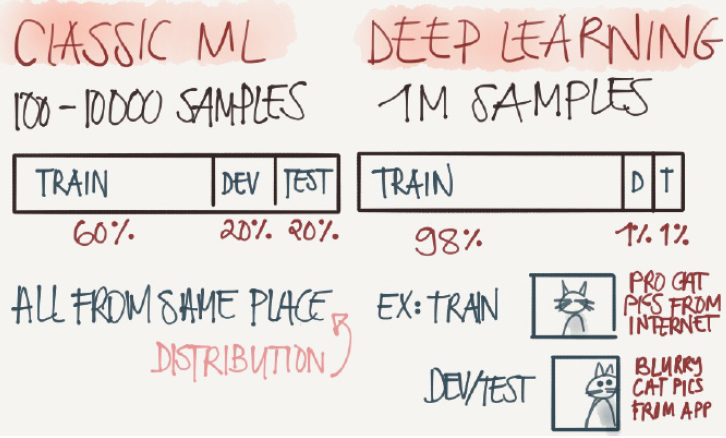 CLASSIC ML
100-10000 SAMPLES
TRAIN DEV TEST
60% 20% 20%
ALL FROM SAME PLACE
DISTRIBUTION
DEEP LEARNING
1M SAMPLES
TRAIN D T
98% 1% 1%
EX: TRAIN
PRO CAT
PICS FROM
INTERNET
DEV/TEST
BLURRY
CAT PICS
FROM APP